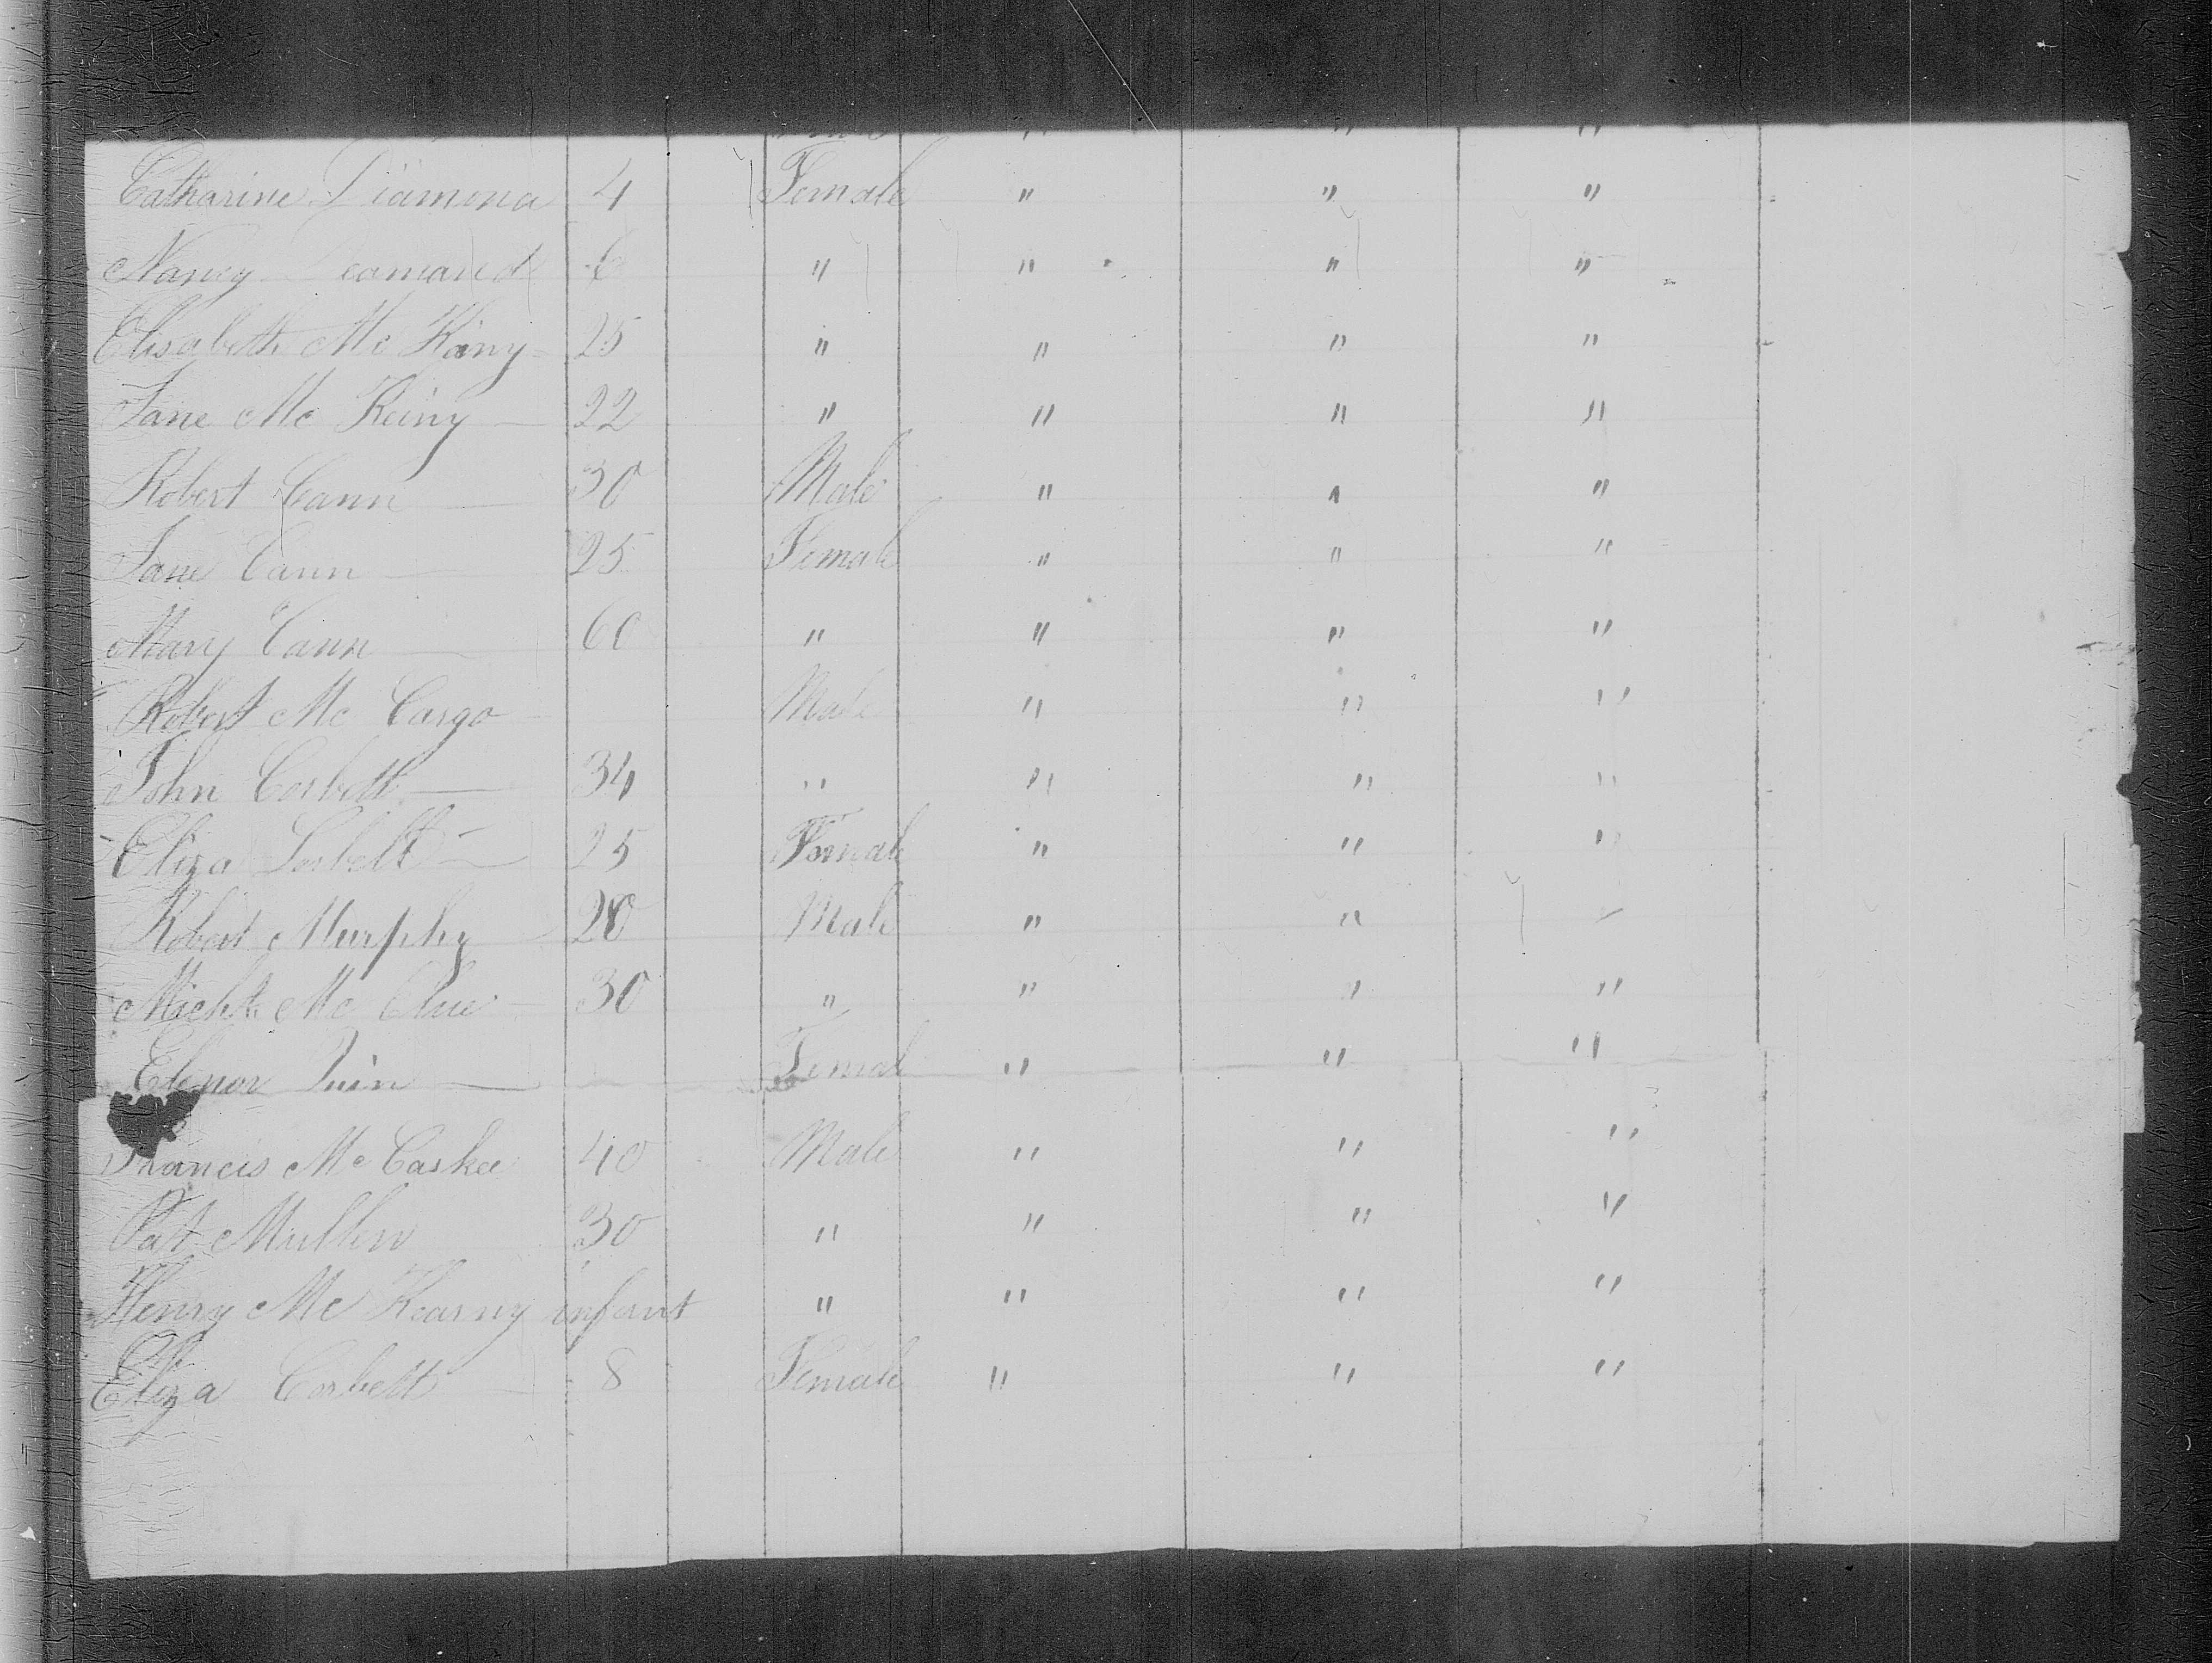 Catharine Diamond 4 Female " " "
Nancy Deamand 6 " " " "
Elisabeth Mc Kany 25 " " " "
Jane Mc Keiny 22 " " " "
Robert Cann 30 Male " " "
Jane Cann 25 Female " " "
Mary Cann 60 " " " "
Robert Mc Cargo Male " " "
John Corbett 34 " " " "
Eliza Corbett 25 Female " " "
Robert Murphy 20 Male " " "
Mc 30 " " " "
Elenor Quin Female " " "
Francis Mc Caskee 40 Male " " "
Pat Mullen 30 " " " "
Henry Mc Kearny infant " " " "
Eliza Corbett 8 Female " " "